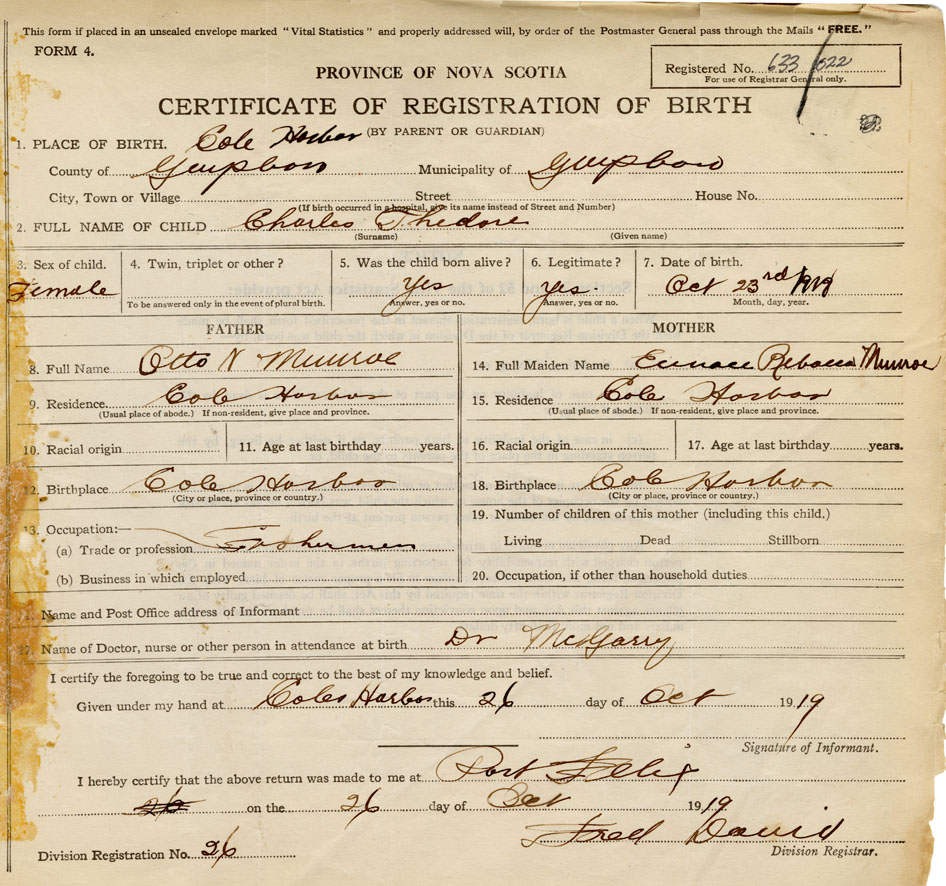 This form if placed in an unsealed envelope marked "Vital Statistics" and properly addressed will, by order of the Postmaster General pass through the Mails "FREE."
FORM 4.
Registered No. 633/622
For use of Registrar General only.
PROVINCE OF NOVA SCOTIA
CERTIFICATE OF REGISTRATION OF BIRTH
(BY PARENT OR GUARDIAN)
1. PLACE OF BIRTH. Cole Harbor
County of Guysboro Municipality of Guysboro
City, Town or Village Street House No.
(If birth occurred in a hospital, give its name instead of Street and Number)
2. FULL NAME OF CHILD Charles Thedore
(Surname) (Given name)
3. Sex of child. 4. Twin, triplet or other? 5. Was the child born alive? 6. Legitimate? 7. Date of birth.
Female Yes Yes Oct 23rd/1919
To be answered only in the event of plural birth. Answer, yes or no. Answer, yes or no. Month, day, year.
FATHER MOTHER
8. Full Name Otto N Munroe 14. Full Maiden Name Rebecca Munroe
9. Residence Cole Harbor 15. Residence Cole Harbor
(Usual place of abode.) If non-resident, give place and province. (Usual place of abode.) If non-resident, give place and province.
10. Racial origin 11. Age at last birthday years. 16. Racial origin 17. Age at last birthday years.
12. Birthplace Cole Harbor 18. Birthplace Cole Harbor
(City or place, province or country.) (City or place, province or country.)
13. Occupation:— 19. Number of children of this mother (including this child.)
(a) Trade or profession Fishermen Living Dead Stillborn
(b) Business in which employed 20. Occupation, if other than household duties
1. Name and Post Office address of Informant
Name of Doctor, nurse or other person in attendance at birth Dr McGarry
I certify the foregoing to be true and correct to the best of my knowledge and belief.
Given under my hand at Coles Harbor this 26 day of Oct 1919
Signature of Informant.
I hereby certify that the above return was made to me at Port Felix
26 on the 26 day of Oct 1919
Fred David
Division Registration No. 26 Division Registrar.